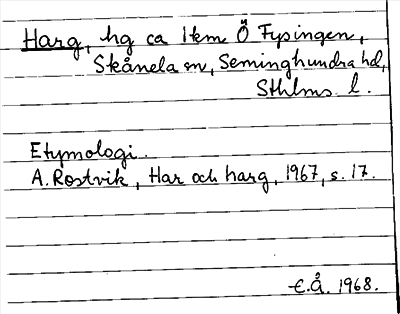 Harg, hg ca 1 km Ö Fysingen,
Skånela sn, Seminghundra hd,
Sthlms l.
Etymologi.
A. Rostvik, Har och harg, 1967, s. 17.
E.Å. 1968.